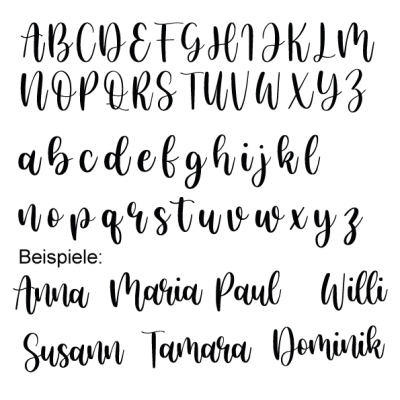 ABCDEFGHIJKLM
NOPQRSTUVWXYZ
abcdefghijkl
nopqrstuvwxyz
Beispiele:
Anna Maria Paul Willi
Susann Tamara Dominik